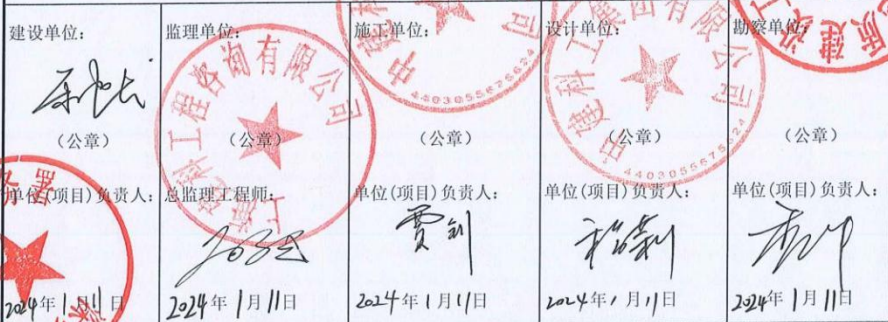 建设单位:
监理单位:
施工单位:
设计单位:
勘察单位:
上海建科工程咨询有限公司
中建科工集团有限公司
4403055675624
4403055675624
(公章)
(公章)
(公章)
(公章)
(公章)
单位(项目)负责人:
总监理工程师:
单位(项目)负责人:
单位(项目)负责人:
单位(项目)负责人:
贾剑
2024年1月11日
2024年1月11日
2024年1月11日
2024年1月11日
2024年1月11日